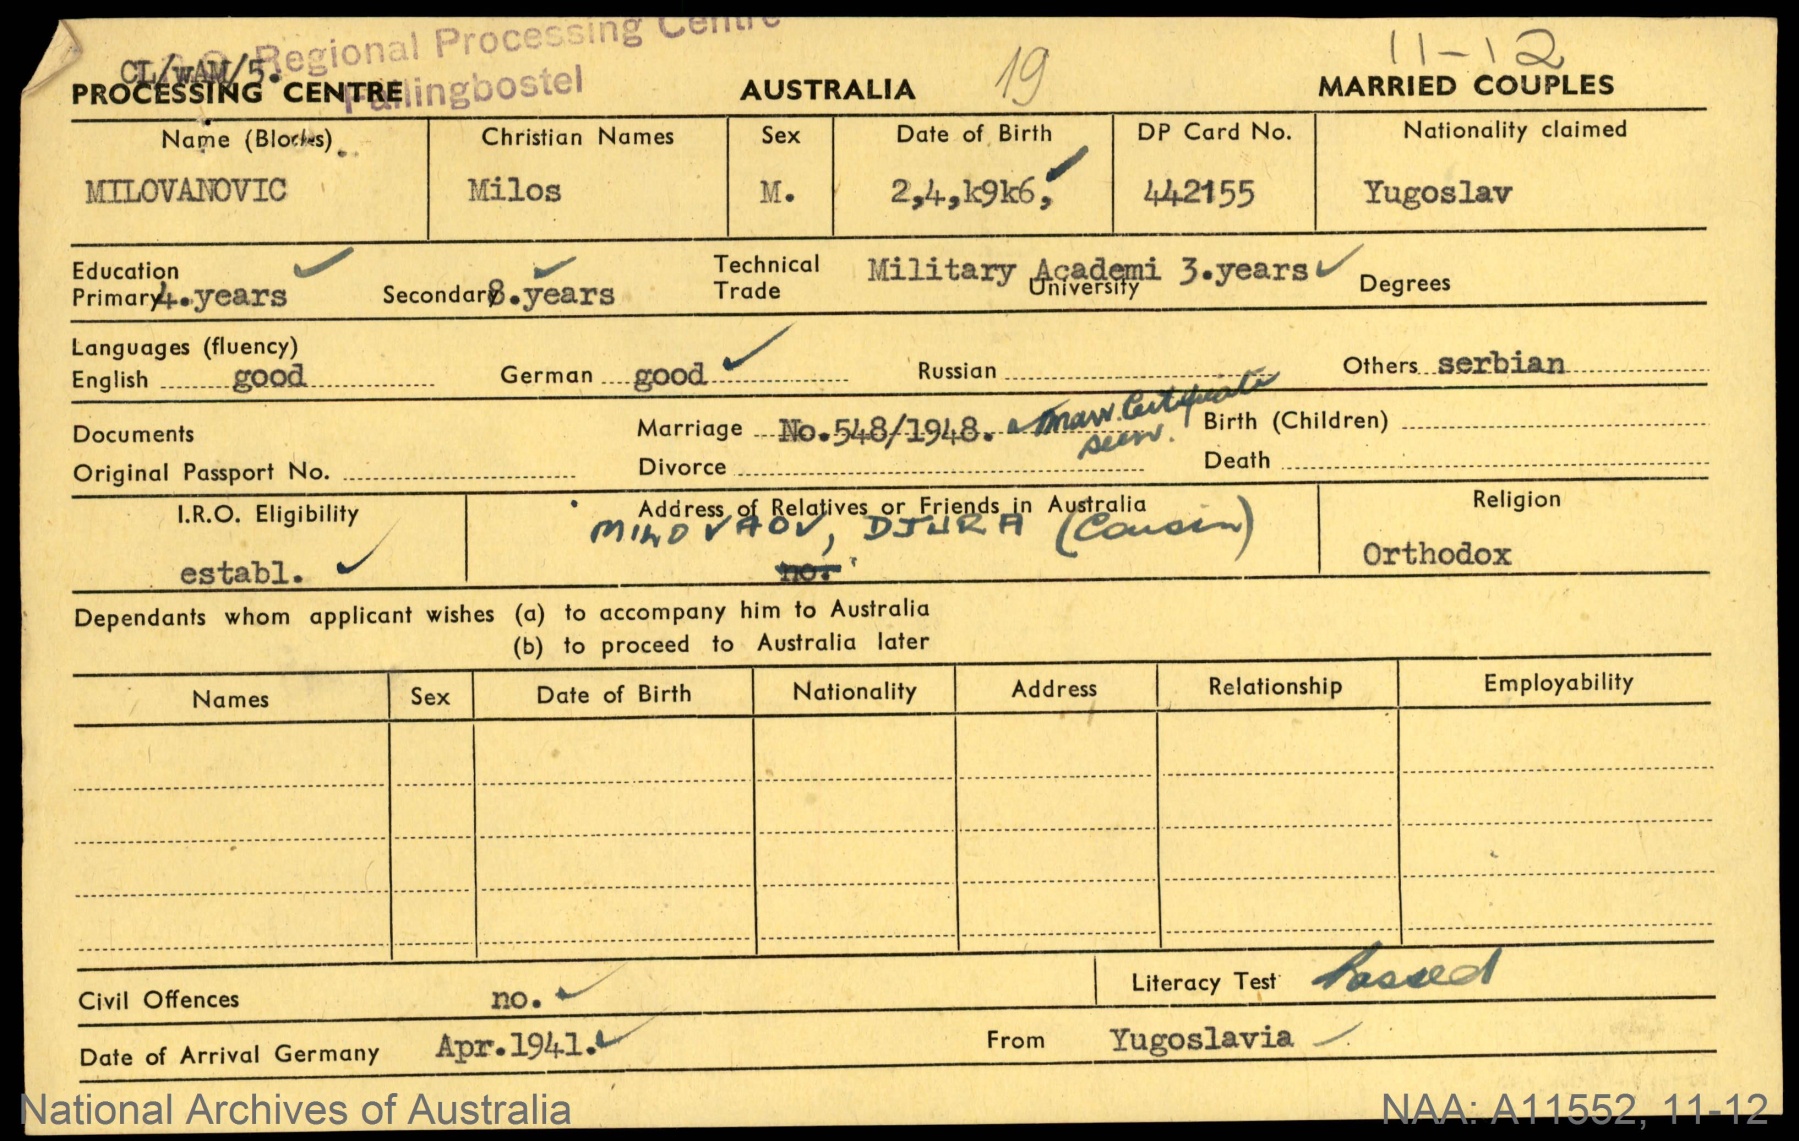 Regional Processing Centre
Fallingbostel
CL/WAM/5.
19
11-12
PROCESSING CENTRE AUSTRALIA MARRIED COUPLES
Name (Blocks) Christian Names Sex Date of Birth DP Card No. Nationality claimed
MILOVANOVIC Milos M. 2,4,k9k6, 442155 Yugoslav
Education Technical Military Academi 3.years
Primary 4.years Secondary 8.years Trade University Degrees
Languages (fluency)
English good German good Russian Others serbian
Documents Marriage No.548/1948. Marr. Certificate seen. Birth (Children)
Original Passport No. Divorce Death
I.R.O. Eligibility Address of Relatives or Friends in Australia Religion
MILOVAOV, DJURA (Cousin)
establ. no. Orthodox
Dependants whom applicant wishes (a) to accompany him to Australia
(b) to proceed to Australia later
Names Sex Date of Birth Nationality Address Relationship Employability
Civil Offences no. Literacy Test Passed
Date of Arrival Germany Apr.1941. From Yugoslavia
National Archives of Australia NAA: A11552, 11-12